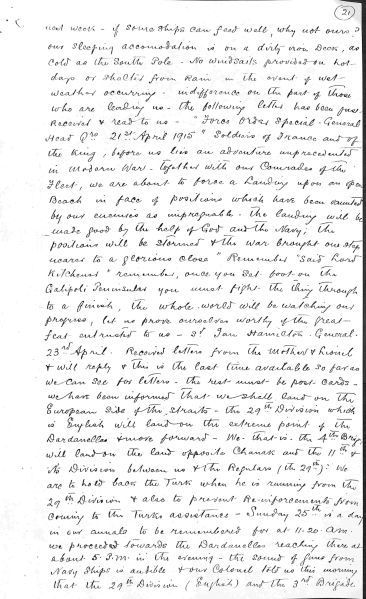 21
next week - if some ships can feed well, why not ours?
our sleeping accomodation is on a dirty iron Deck, as
cold as the South Pole - No windsails provided on hot
days or shelter from Rain in the event of wet
weather occurring - indifference on the part of those
who are leading us - the following letter has been just
Received & read to us - "Force Order Special - General
Head Qrs 21st April 1915 "Soldiers of France and of
the King, before us lies an adventure unprecedented
in Modern War. together with our Comrades of the
Fleet, we are about to force a Landing upon an open
Beach in face of positions which have been vaunted
by our enemies as impregnable. the landing will be
made good by the help of God and the Navy; the
positions will be stormed & the War brought one step
nearer to a glorious close" Remember "said Lord
Kitchener" remember, once you set foot on the
Galipoli Peninsular you must fight the thing through
to a finish, the whole world will be watching our
progress, let us prove ourselves worthy of the great
feat entrusted to us - Ian Hamilton - General.
23rd April. Received letters from the Mother &
& will reply & this is the last time available so far as
we can see for letters - the rest must be post-cards -
we have been informed that we shall land on the
European side of the straits - the 29th Division which
is English will land on the extreme point of the
Dardanelles & move forward - We - that is - the 4th Brig.
will land on the land opposite Chanak and the 11th &
its Division between us & the Regulars (the 29th): We
are to hold back the Turk when he is running from the
29th Division & also to prevent Reinforcements from
coming to the Turks assistance - Sunday 25th is a day
in our annals to be remembered for at 11-20 am.
we proceeded towards the Dardanelles reaching there at
about 5 P.m. in the evening - the sound of guns from
Navy Ships is audible & our Colonel told us this morning
that the 29th Division (English) and the 3rd Brigade